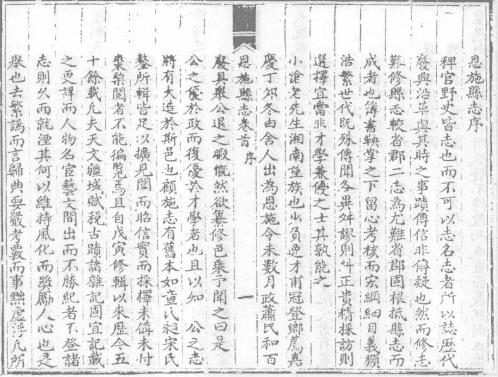 恩施縣志序
稗官野史皆志也而不可以志名志者所以誌歷代
廢興沿革與其時之事蹟傳信非傳疑也然而修志
難修縣志較省郡二志為尤難省郡固根柢縣志而
成者也簿書鞅掌之下留心考核而宏綱細目義類
治繁世代既殊傳聞各異舛謬則糾正貴精採訪則
選擇宜當非才學兼優之士其孰能之
小滄老先生湘南望族也少負逸才甫冠登鄉薦嘉
慶丁卯冬由舍人出為恩施令未數月政肅民和百
恩施縣志卷首 序
一
廢具舉公退之暇慨然欲纂修邑乘予聞之曰是
公之優於政而復優於才學者也且以知 公之志
將有大造於斯邑也顧施志有舊本如童氏昶宋氏
鏊所輯皆足以擴見聞而昭信實而採擇未備未付
棗梨閱者不能徧覽焉且自戊寅修輯以來歷今五
十餘載凡夫天文疆域賦稅古蹟諸雜記固宜記載
之更詳而人物名宦藝文間出而不勝紀者不登諸
志則久而就湮其何以維持風化而獎勵人心也是
舉也去繁謟而言歸典要嚴考覈而事黜虛浮凡所